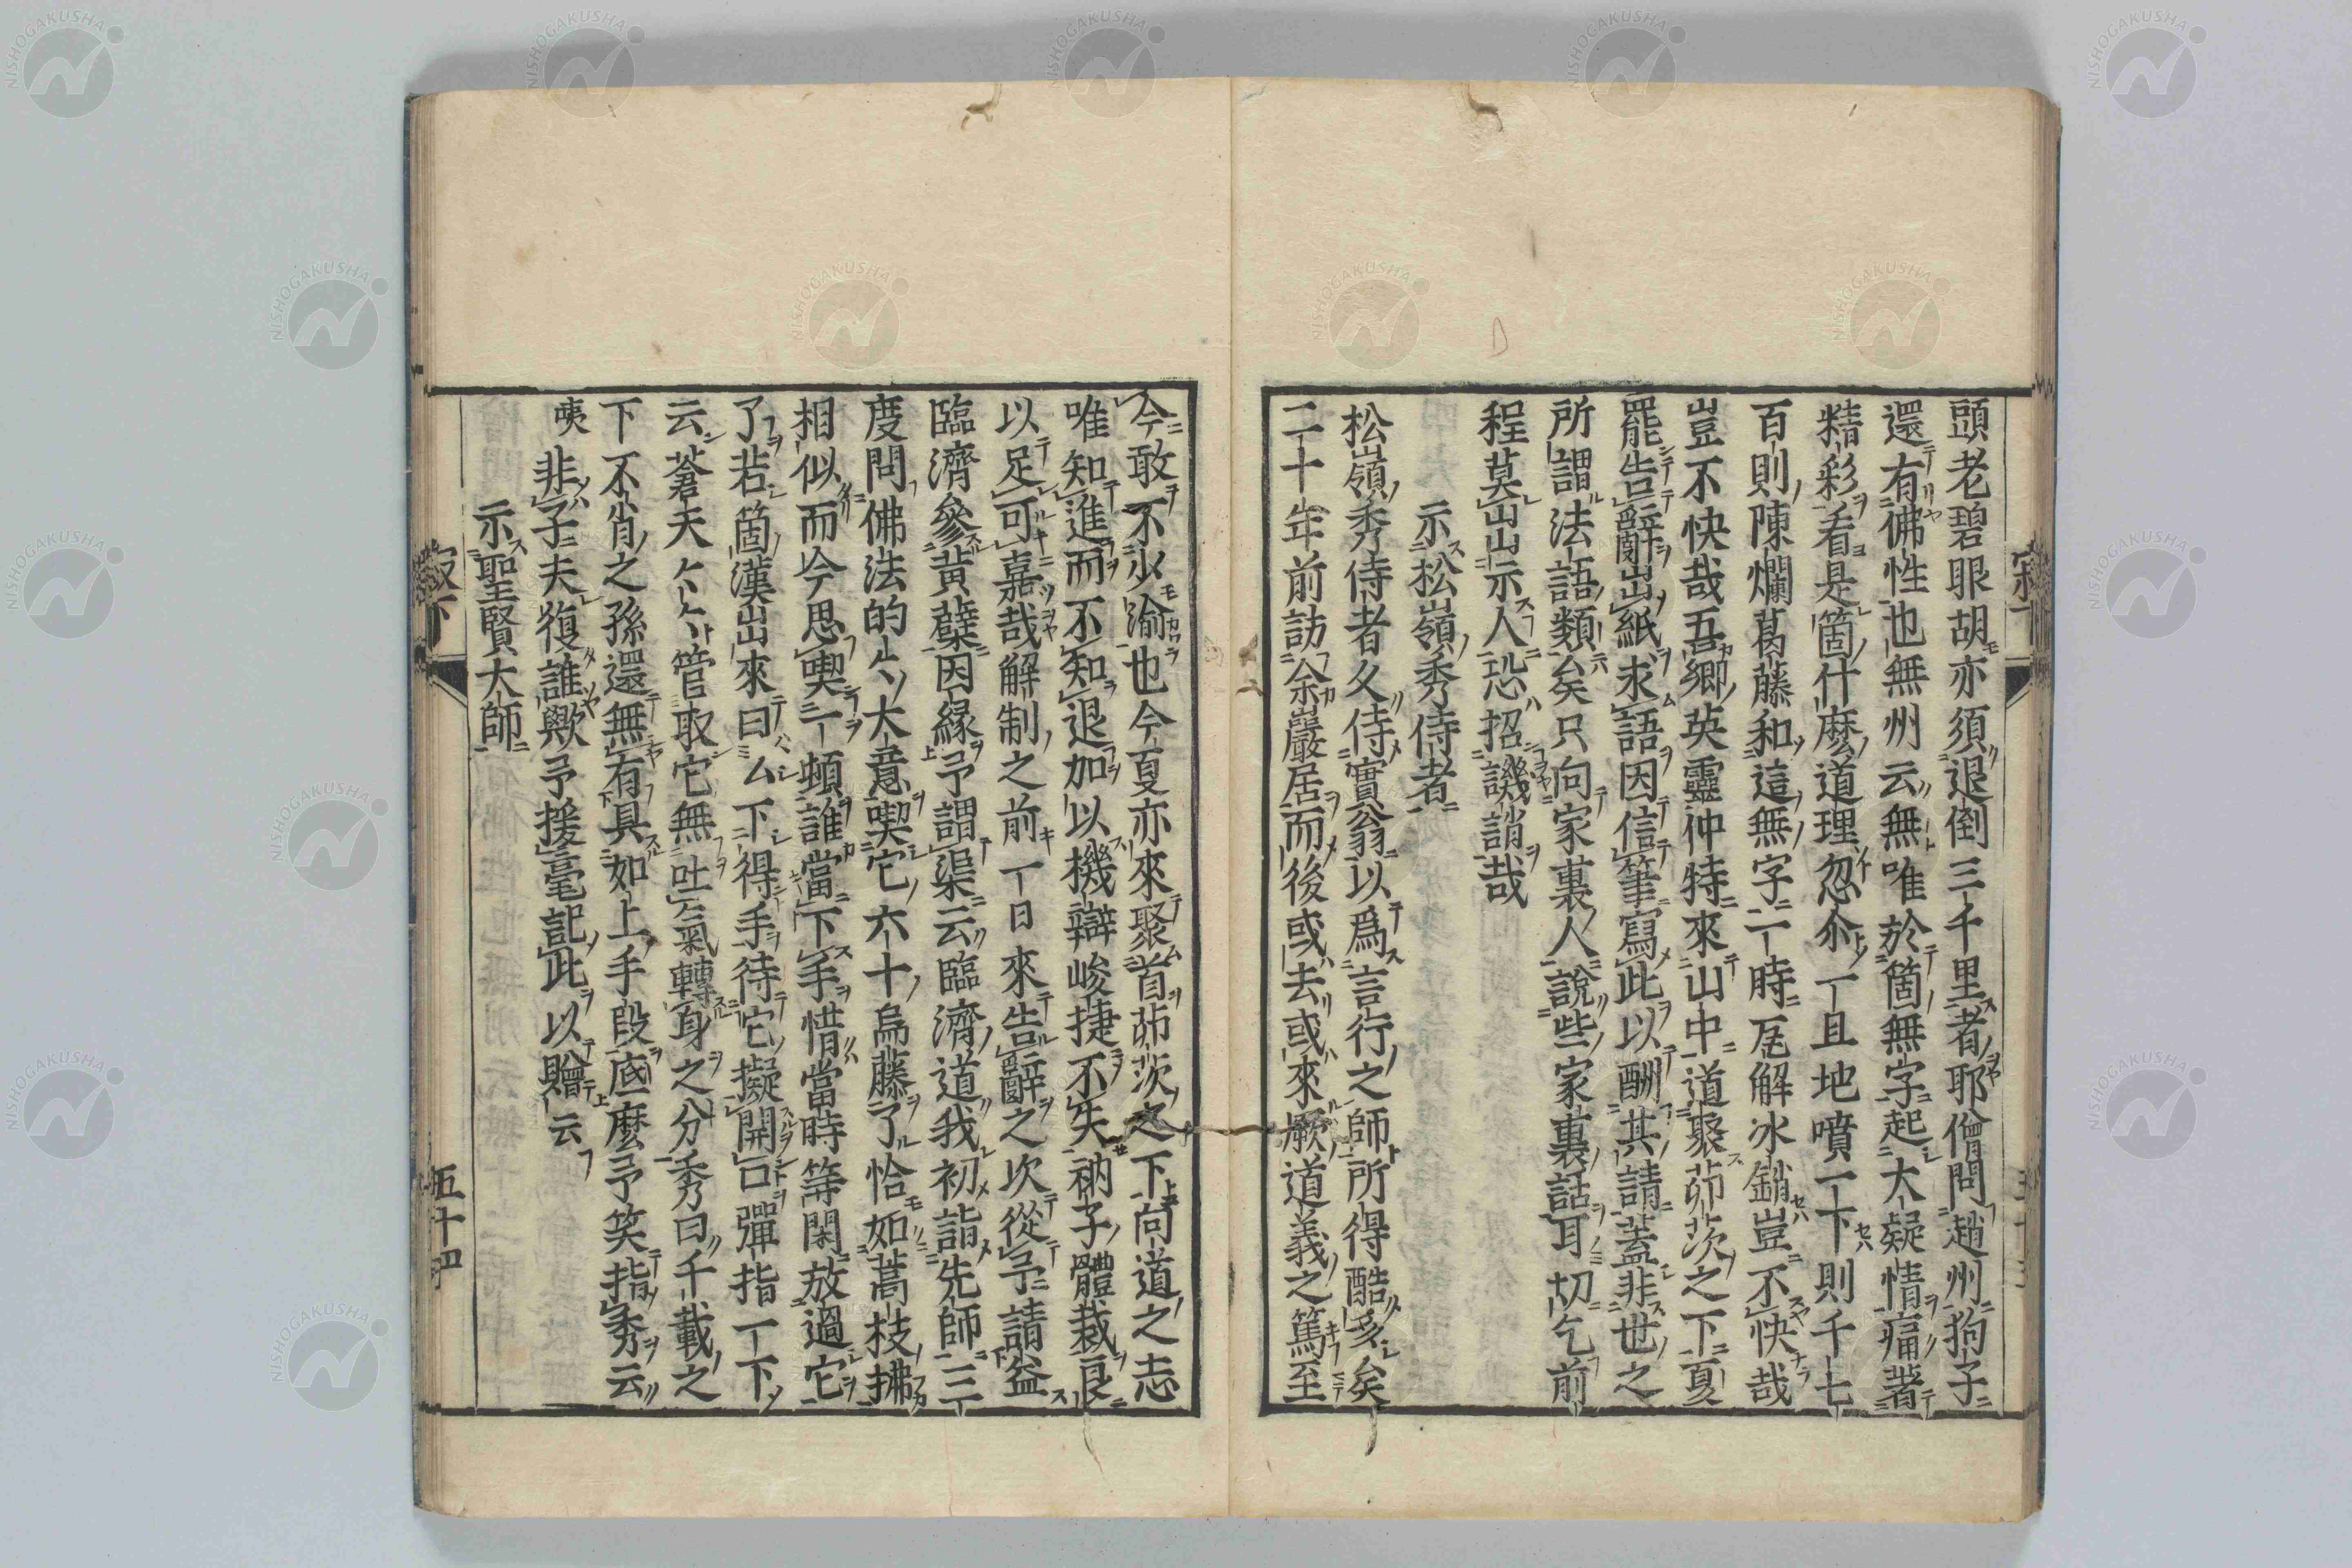 頭老碧眼胡亦須退倒三千里者耶僧問趙州狗子
還有佛性也無州云無唯於箇無字起大疑情痛著
精彩看是箇什麼道理忽尒一旦地噴一下則千七
百則陳爛葛藤和這無字一時瓦解冰銷豈不快哉
豈不快哉吾鄉英靈仲特來山中道聚茆茨之下夏
罷告辭出紙求語因信筆寫此以酬其請蓋非世之
所謂法語類矣只向家裏人說些家裏話耳切乞前
程莫出出示人恐招譏誚哉
示松嶺秀侍者
松嶺秀侍者久侍實翁以爲言行之師所得酷多矣
二十年前訪余巖居而後或去或來厥道義之篤至
今敢不少渝也今夏亦來聚首茆茨之下向道之志
唯知進而不知退加以機辯峻捷不失衲子體裁良
以足可嘉哉解制之前一日來告辭之次從予請益
臨濟參黃蘗因緣予謂渠云臨濟道我初詣先師三
度問佛法的〻大意喫它六十烏藤了恰如蒿枝拂
相似而今思喫一頓誰當下手惜當時等閑放過它
了若箇漢出來曰厶下得手待它擬開口彈指一下
云蒼天〻〻管取它無吐氣轉身之分秀曰千載之
下不肖之孫還無有具如上手段底麼予笑指秀云
咦非子夫復誰歟予援毫記此以贈云
示聖賢大師
寂下
五十四
NISHOGAKUSHA